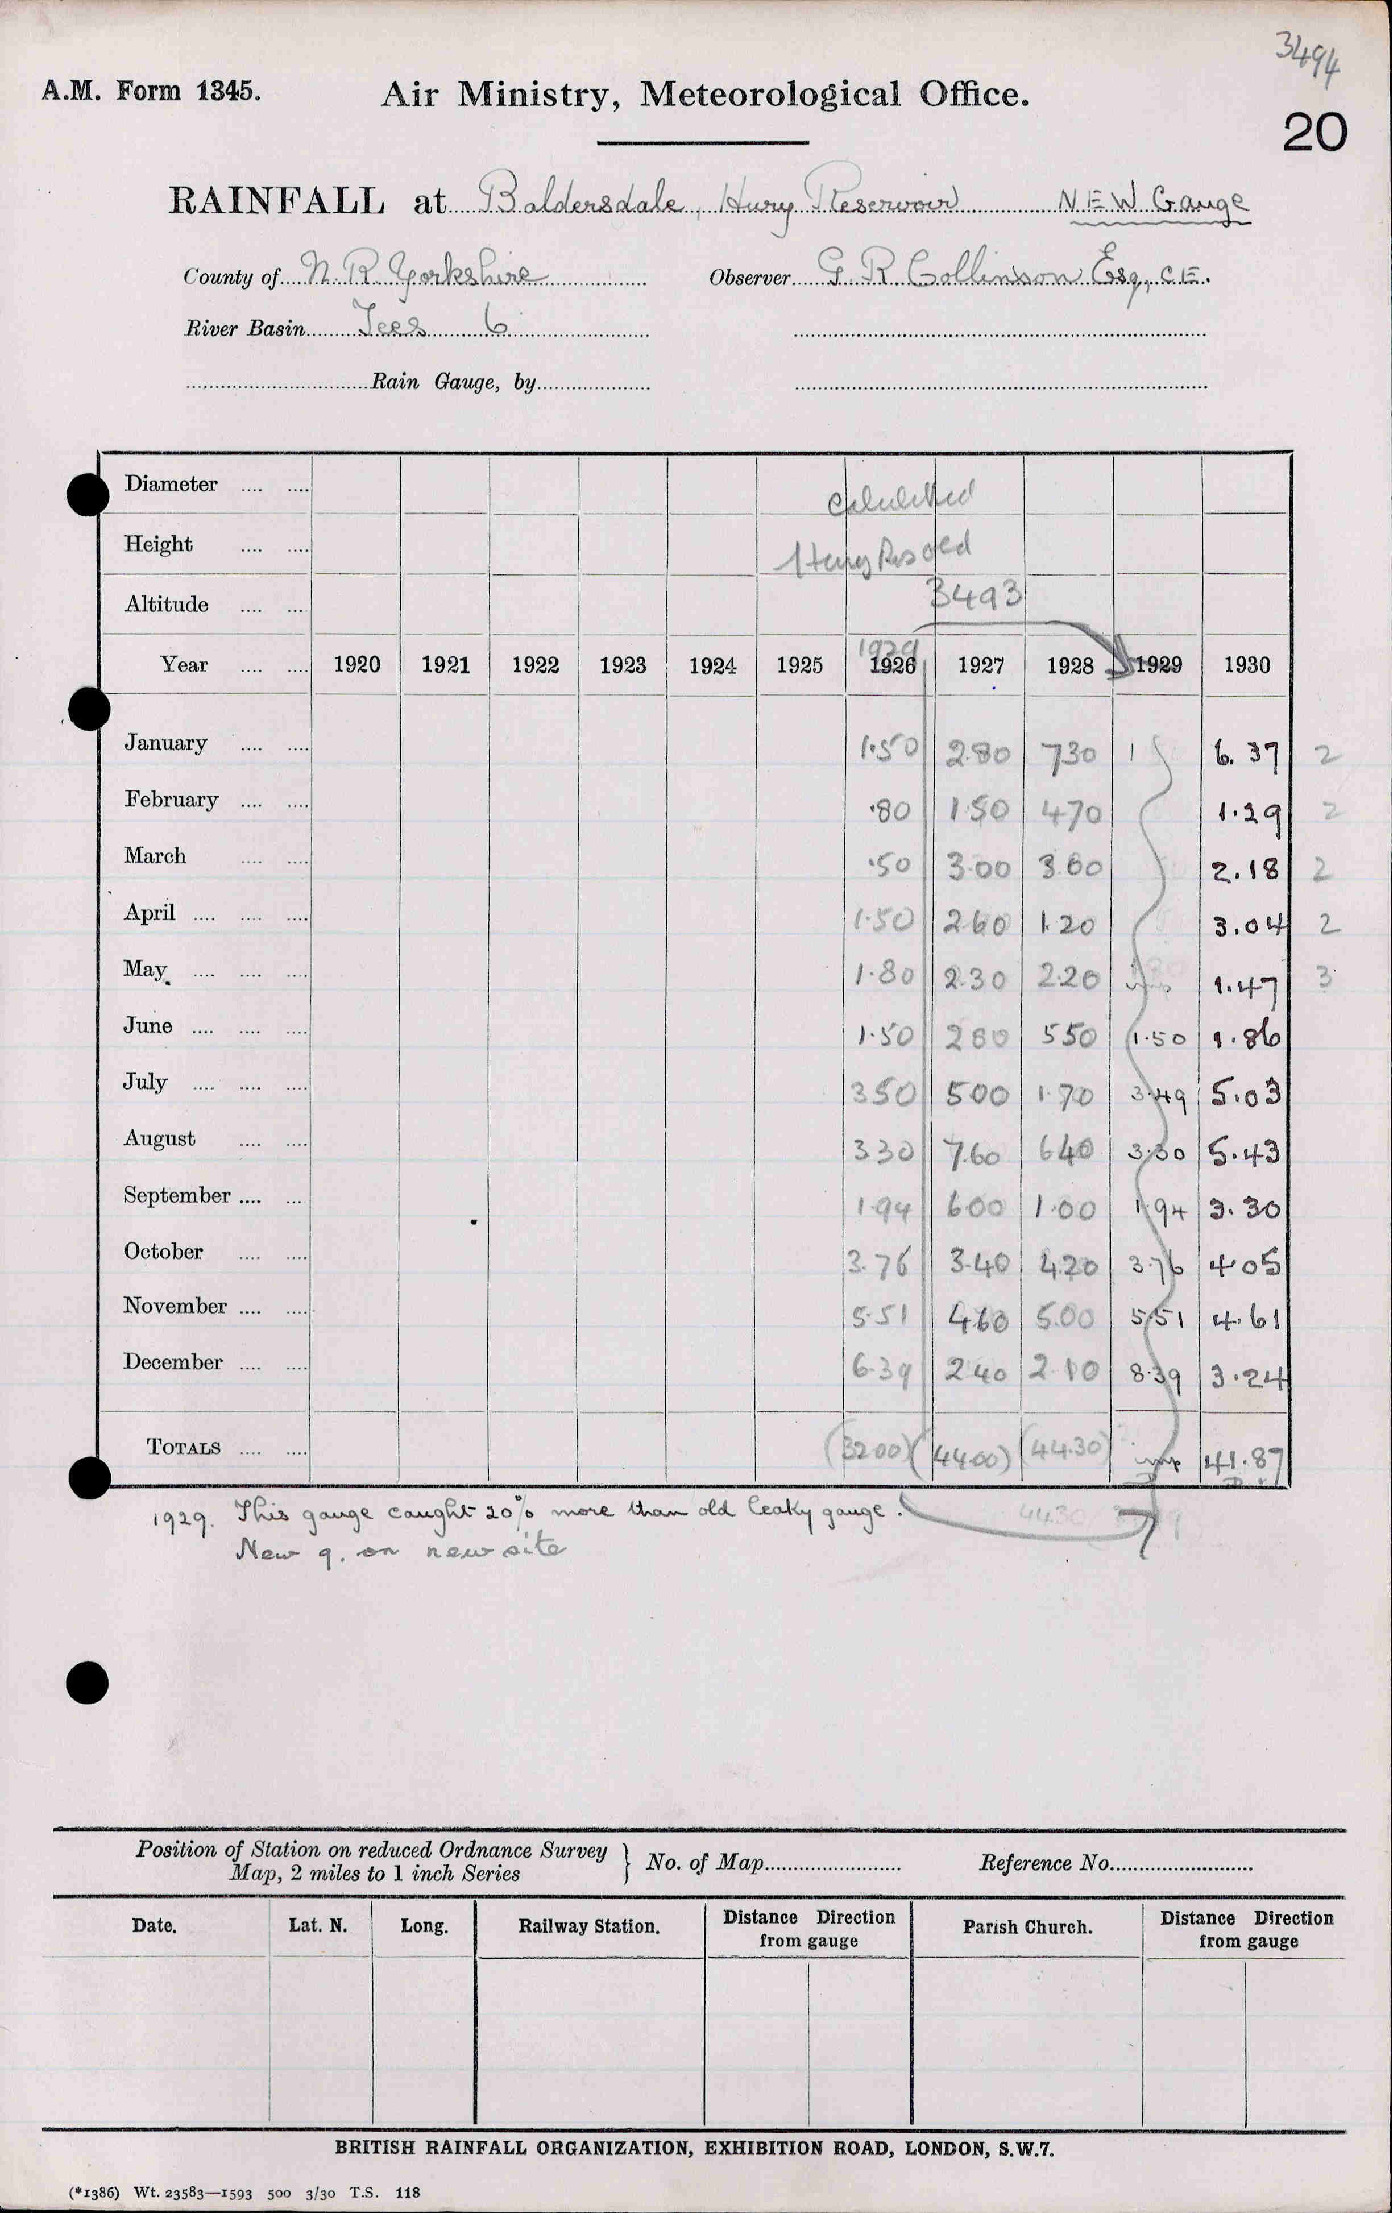 3494
A.M. Form 1345. Air Ministry, Meteorological Office.
20
RAINFALL at Baldersdale, Hury Reservoir NEW Gauge
County of N. R. Yorkshire Observer G. R. Collinson Esq, C.E.
River Basin Tees 6
Rain Gauge, by
Diameter .... .... Calculated
Height .... .... Hury Res old
Altitude .... .... 3493
1929
Year .... .... 1920 1921 1922 1923 1924 1925 1926 1927 1928 1929 1930
January .... .... 1.50 2.80 7.30 6.37 2
February .... .... .80 1.50 4.70 1.29 2
March .... .... .50 3.00 3.60 2.18 2
April .... .... .... 1.50 2.60 1.20 3.04 2
May .... .... .... 1.80 2.30 2.20 1.47 3
June .... .... .... 1.50 2.80 5.50 1.50 1.86
July .... .... .... 3.50 5.00 1.70 3.49 5.03
August .... .... 3.30 7.60 6.40 3.30 5.43
September .... .... 1.94 6.00 1.00 1.94 3.30
October .... .... 3.76 3.40 4.20 3.76 4.05
November .... .... 5.51 4.60 5.00 5.51 4.61
December .... .... 6.39 2.40 2.10 8.39 3.24
TOTALS .... .... (32.00) (44.00) (44.30) imp 41.87
1929. This gauge caught 20% more than old leaky gauge. 44.30
New g. on new site
Position of Station on reduced Ordnance Survey
Map, 2 miles to 1 inch Series } No. of Map Reference No.
Date. Lat. N. Long. Railway Station. Distance Direction from gauge Parish Church. Distance Direction from gauge
BRITISH RAINFALL ORGANIZATION, EXHIBITION ROAD, LONDON, S.W.7.
(*1386) Wt. 23583—1593 500 3/30 T.S. 118